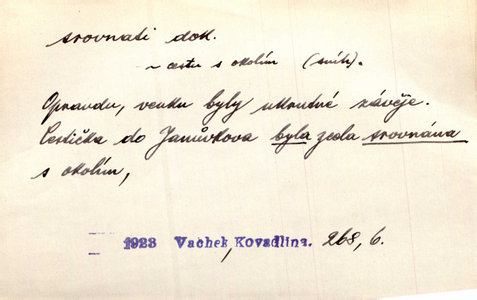 srovnati dok.
~ cestu s okolím (sníh).
Opravdu, venku byly ukrutné závěje.
Cestička do Janůvkova byla zcela srovnána
s okolím,
1923 Vachek, Kovadlina. 268, 6.